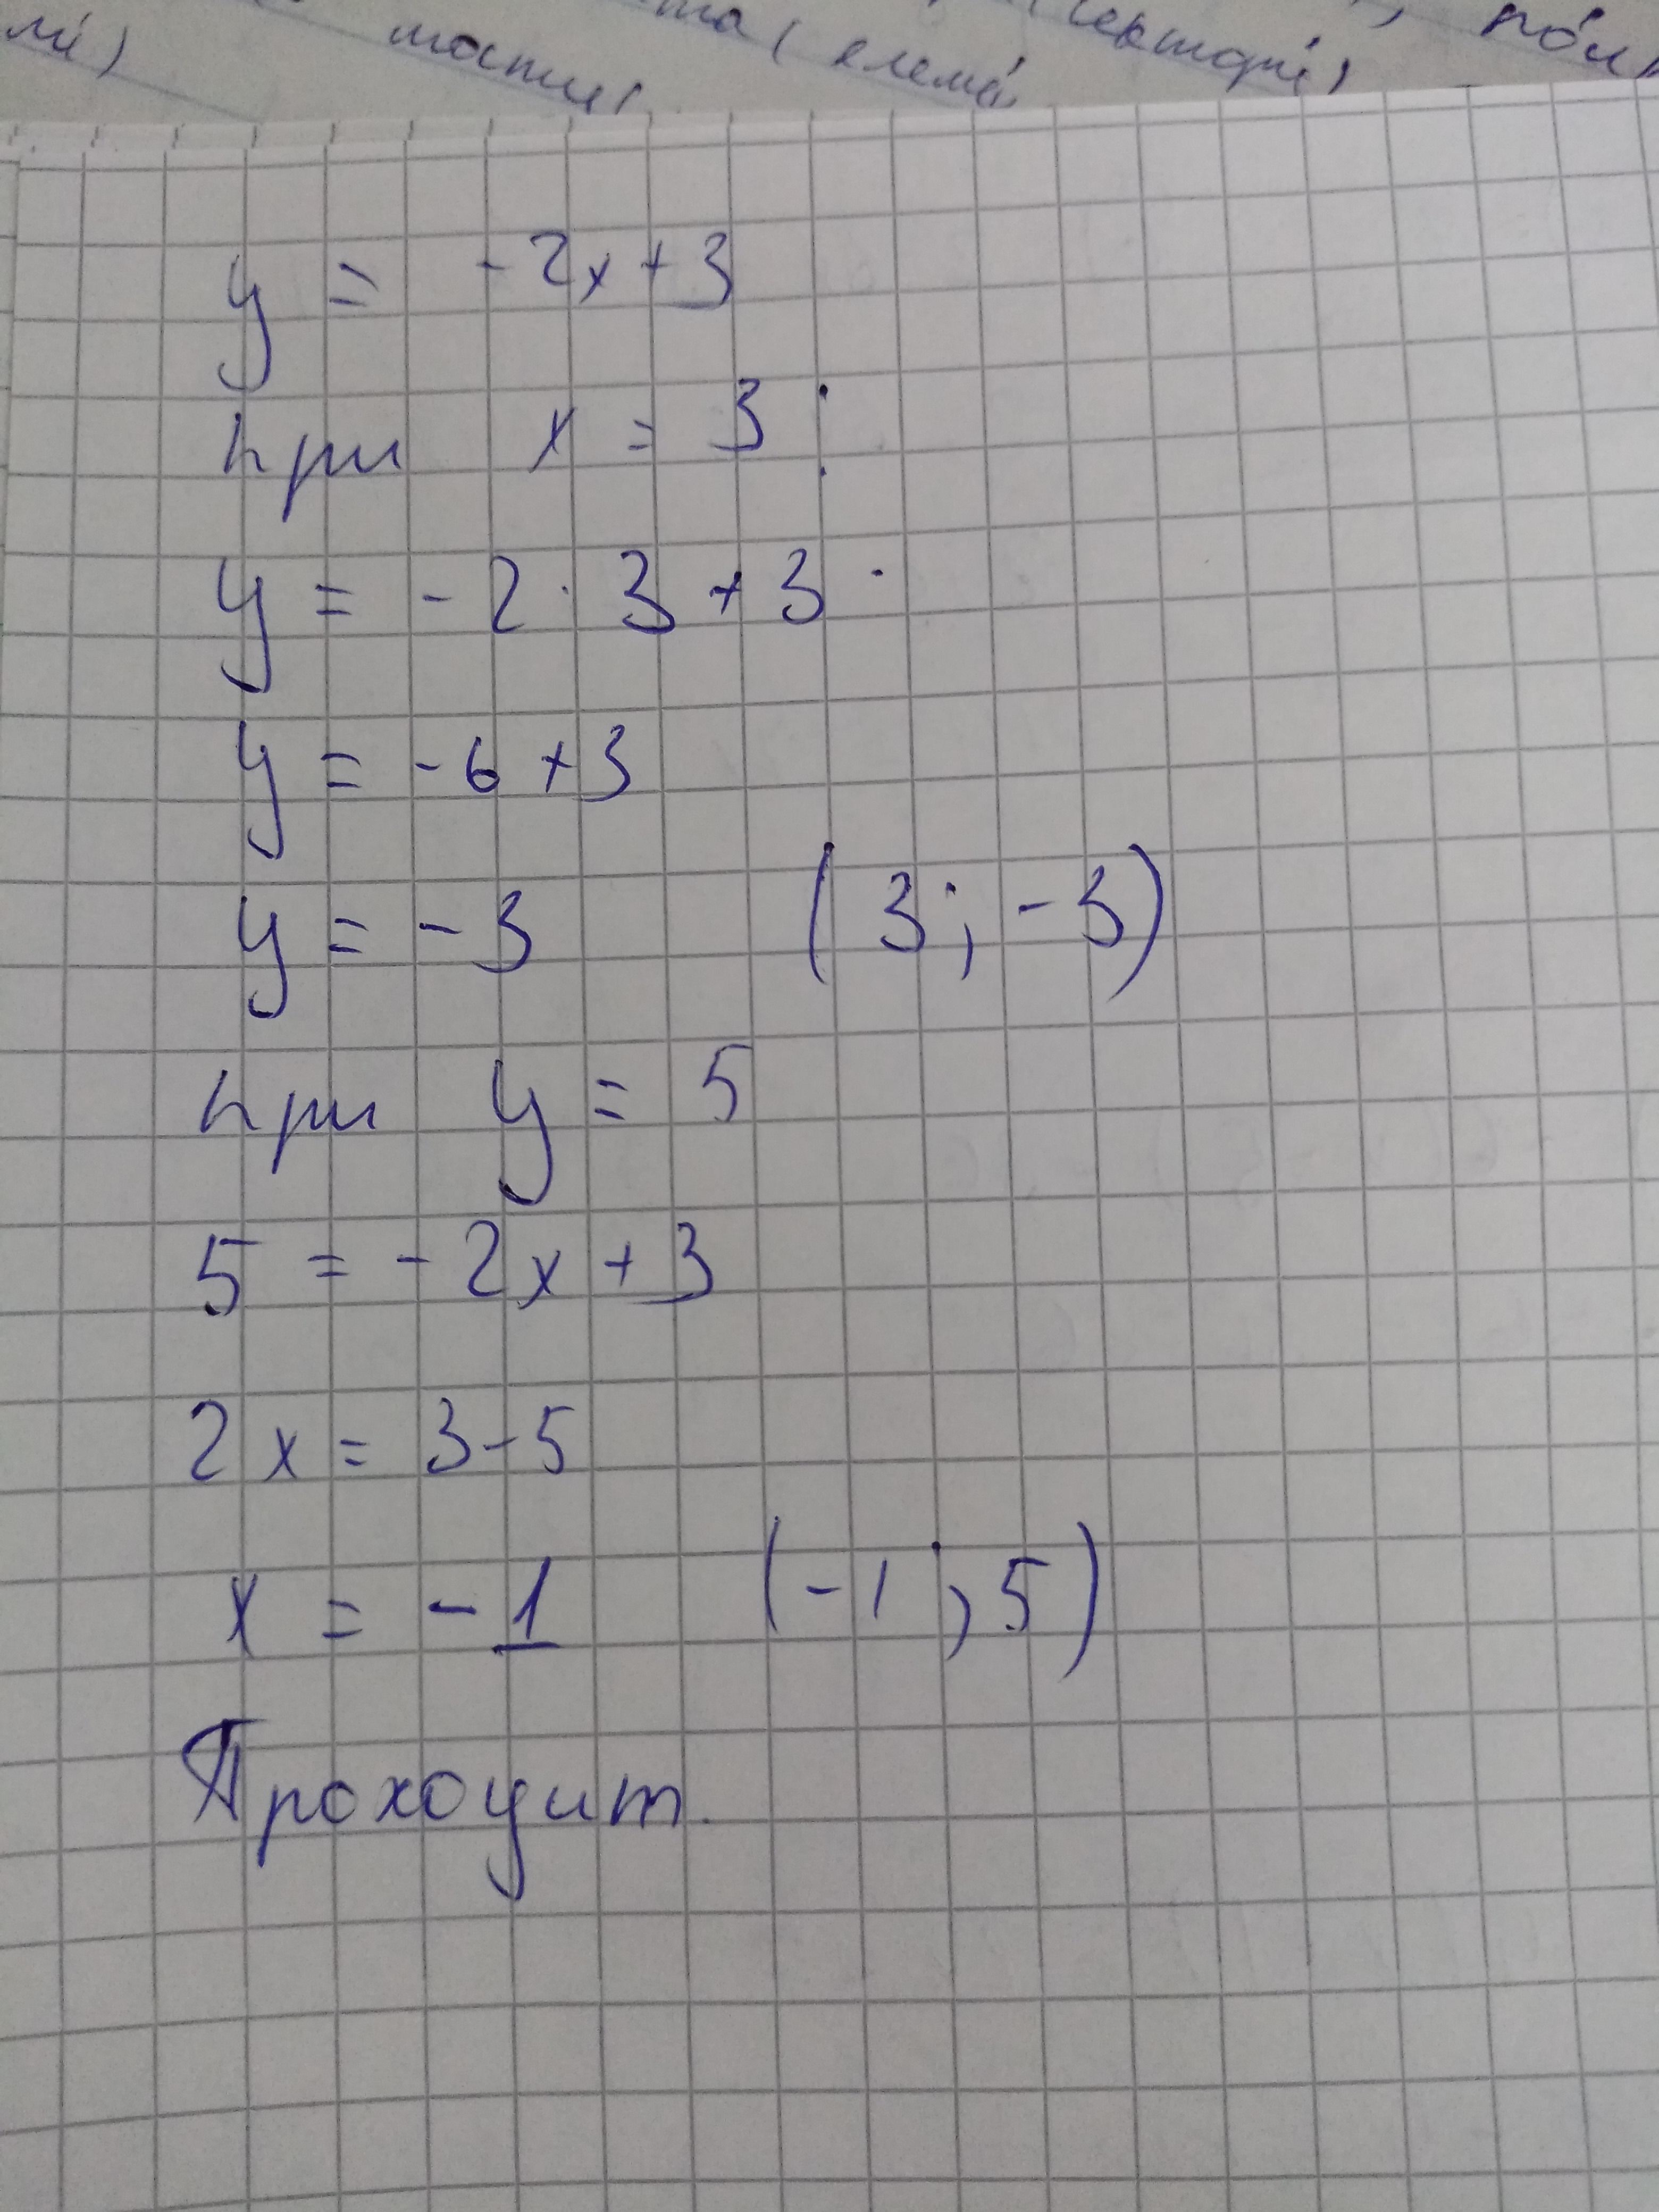 мі) мости, та ( елемо, лекторні, пол
y = -2x+3
при x = 3 :
y = -2·3+3
y = -6+3
y = -3 (3; -3)
при y = 5
5 = -2x+3
2x = 3-5
x = -1 (-1; 5)
Проходит.